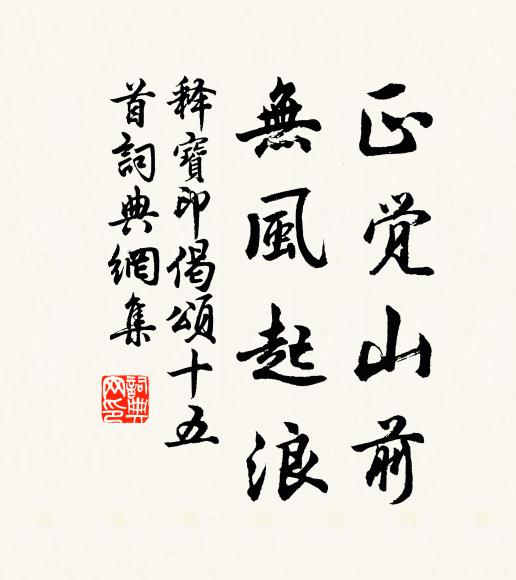 正觉山前
無風起浪
释寶印偈頌十五
首詞典網集
詞典网印